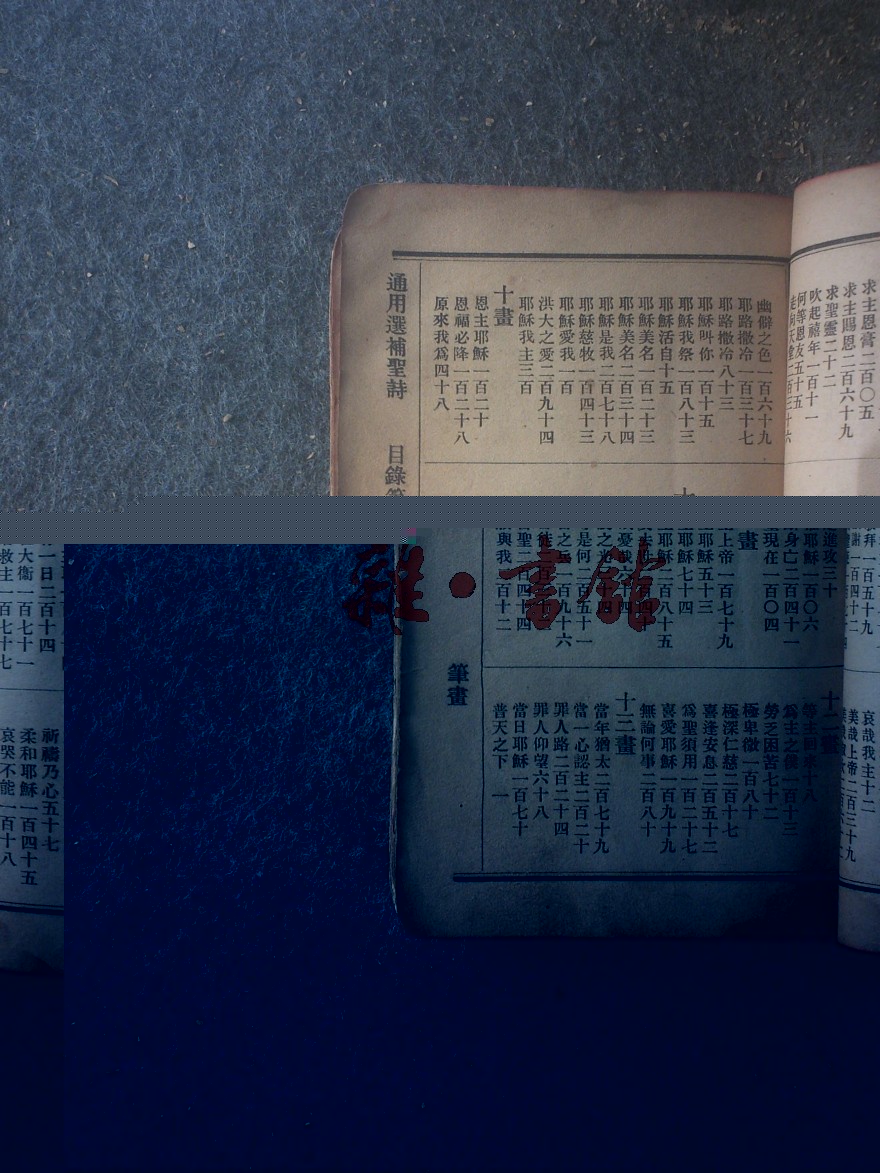 求主恩膏二百〇五
求主賜恩二百六十九
求聖靈二十二
吹起禧年一百十一
何等恩友五十五
走向天堂一百三十六
幽僻之色一百六十九
耶路撒冷一百三十七
耶路撒冷八十三
耶穌叫你一百十五
耶穌我祭一百八十三
耶穌活自十五
耶穌美名一百二十三
耶穌美名二百三十四
耶穌是我二百七十八
耶穌慈牧一百四十三
耶穌愛我一百
洪大之愛二百九十四
耶穌我主三百
十畫
恩主耶穌一百二十
恩福必降一百二十八
原來我爲四十八
通用選補聖詩
目錄
進攻三十
耶穌一百〇六
身亡二百四十一
現在一百〇四
畫
上帝一百七十九
耶穌五十三
耶穌七十四
耶穌二百八十五
是何二百五十一
之兵一百九十六
聖二百四十四
與我一百十二
雜·書館
筆畫
哀哉我主十二
美哉上帝二百三十九
十二畫
等主回來十八
爲主之僕一百十三
勞乏困苦七十二
極卑微一百八十
極深仁慈二百十七
喜逢安息二百五十二
爲聖須用一百二十七
喜愛耶穌一百九十九
無論何事二百八十
十三畫
當年猶太二百七十九
當一心認主二百二十
罪人路二百二十四
罪人仰望六十八
當日耶穌一百七十
普天之下一
一日二百十四
大衞一百七十一
救主一百七十七
祈禱乃心五十七
柔和耶穌一百四十五
哀哭不能一百十八